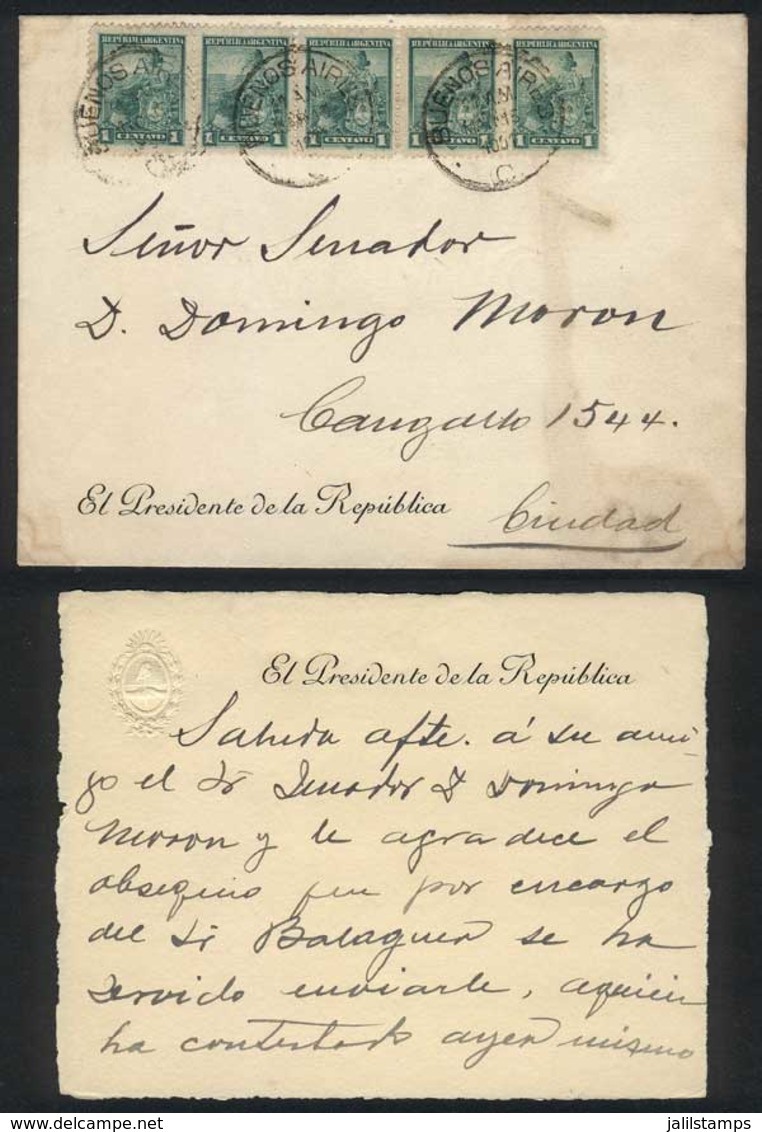 REPÚBLICA ARGENTINA REPÚBLICA ARGENTINA REPÚBLICA ARGENTINA REPÚBLICA ARGENTINA REPÚBLICA ARGENTINA
BUENOS AIRES BUENOS AIRES
C C
1 CENTAVO 1 1 CENTAVO 1 1 CENTAVO 1 1 CENTAVO 1 1 CENTAVO 1
Señor Senador
D. Domingo Moron
Cangallo 1544.
El Presidente de la República
Ciudad
El Presidente de la República
Saluda afte. á su ami-
go el Sr Senador D Domingo
Moron y le agradece el
obsequio que por encargo
del Sr Balaguer se ha
servido enviarle, aquien
ha contestado ayer mismo
jalilstamps